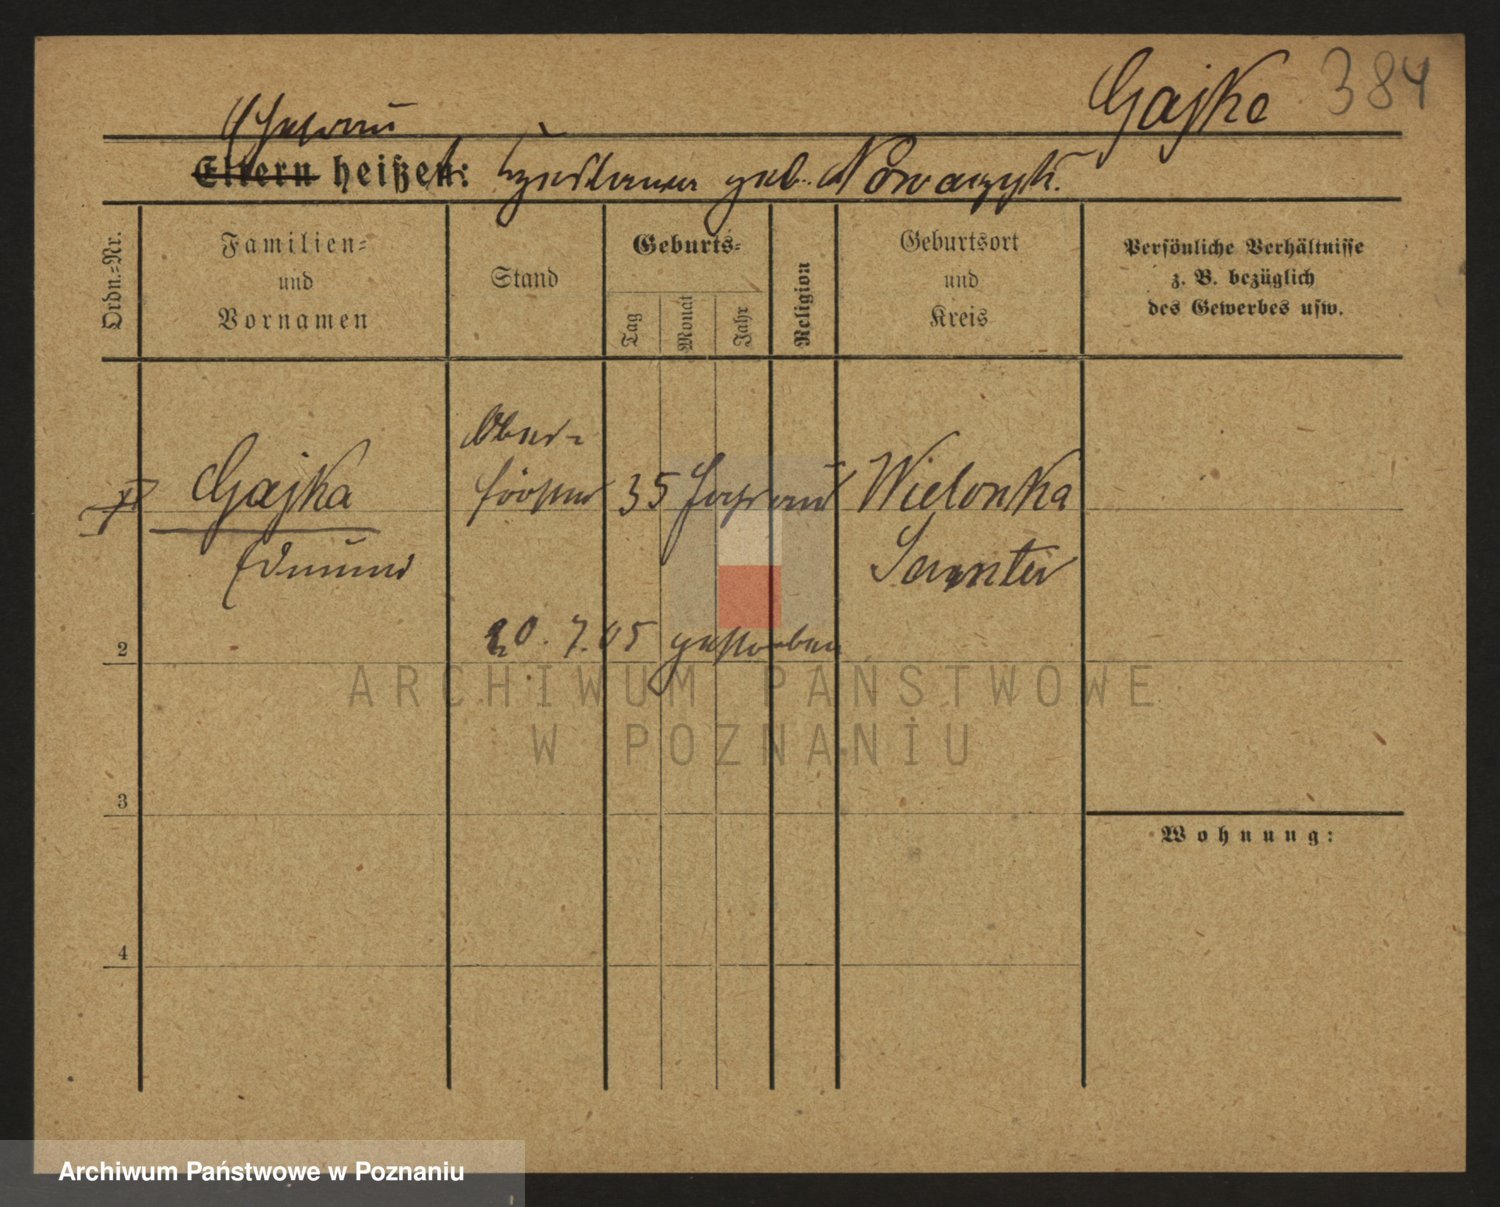 Gajke 384
Ehefrau
Eltern heißen: geb. Nowaczyk.
Ordn.-Nr.
Familien-
und
Vornamen
Stand
Geburts-
Tag
Monat
Jahr
Religion
Geburtsort
und
Kreis
Persönliche Verhältnisse
z. B. bezüglich
des Gewerbes usw.
Gajka
Edmund
Ober-
förster
35 Jahr
Wielonka
Samter
20. 7. 05 gestorben
2
3
4
Wohnung:
ARCHIWUM PAŃSTWOWE
W POZNANIU
Archiwum Państwowe w Poznaniu